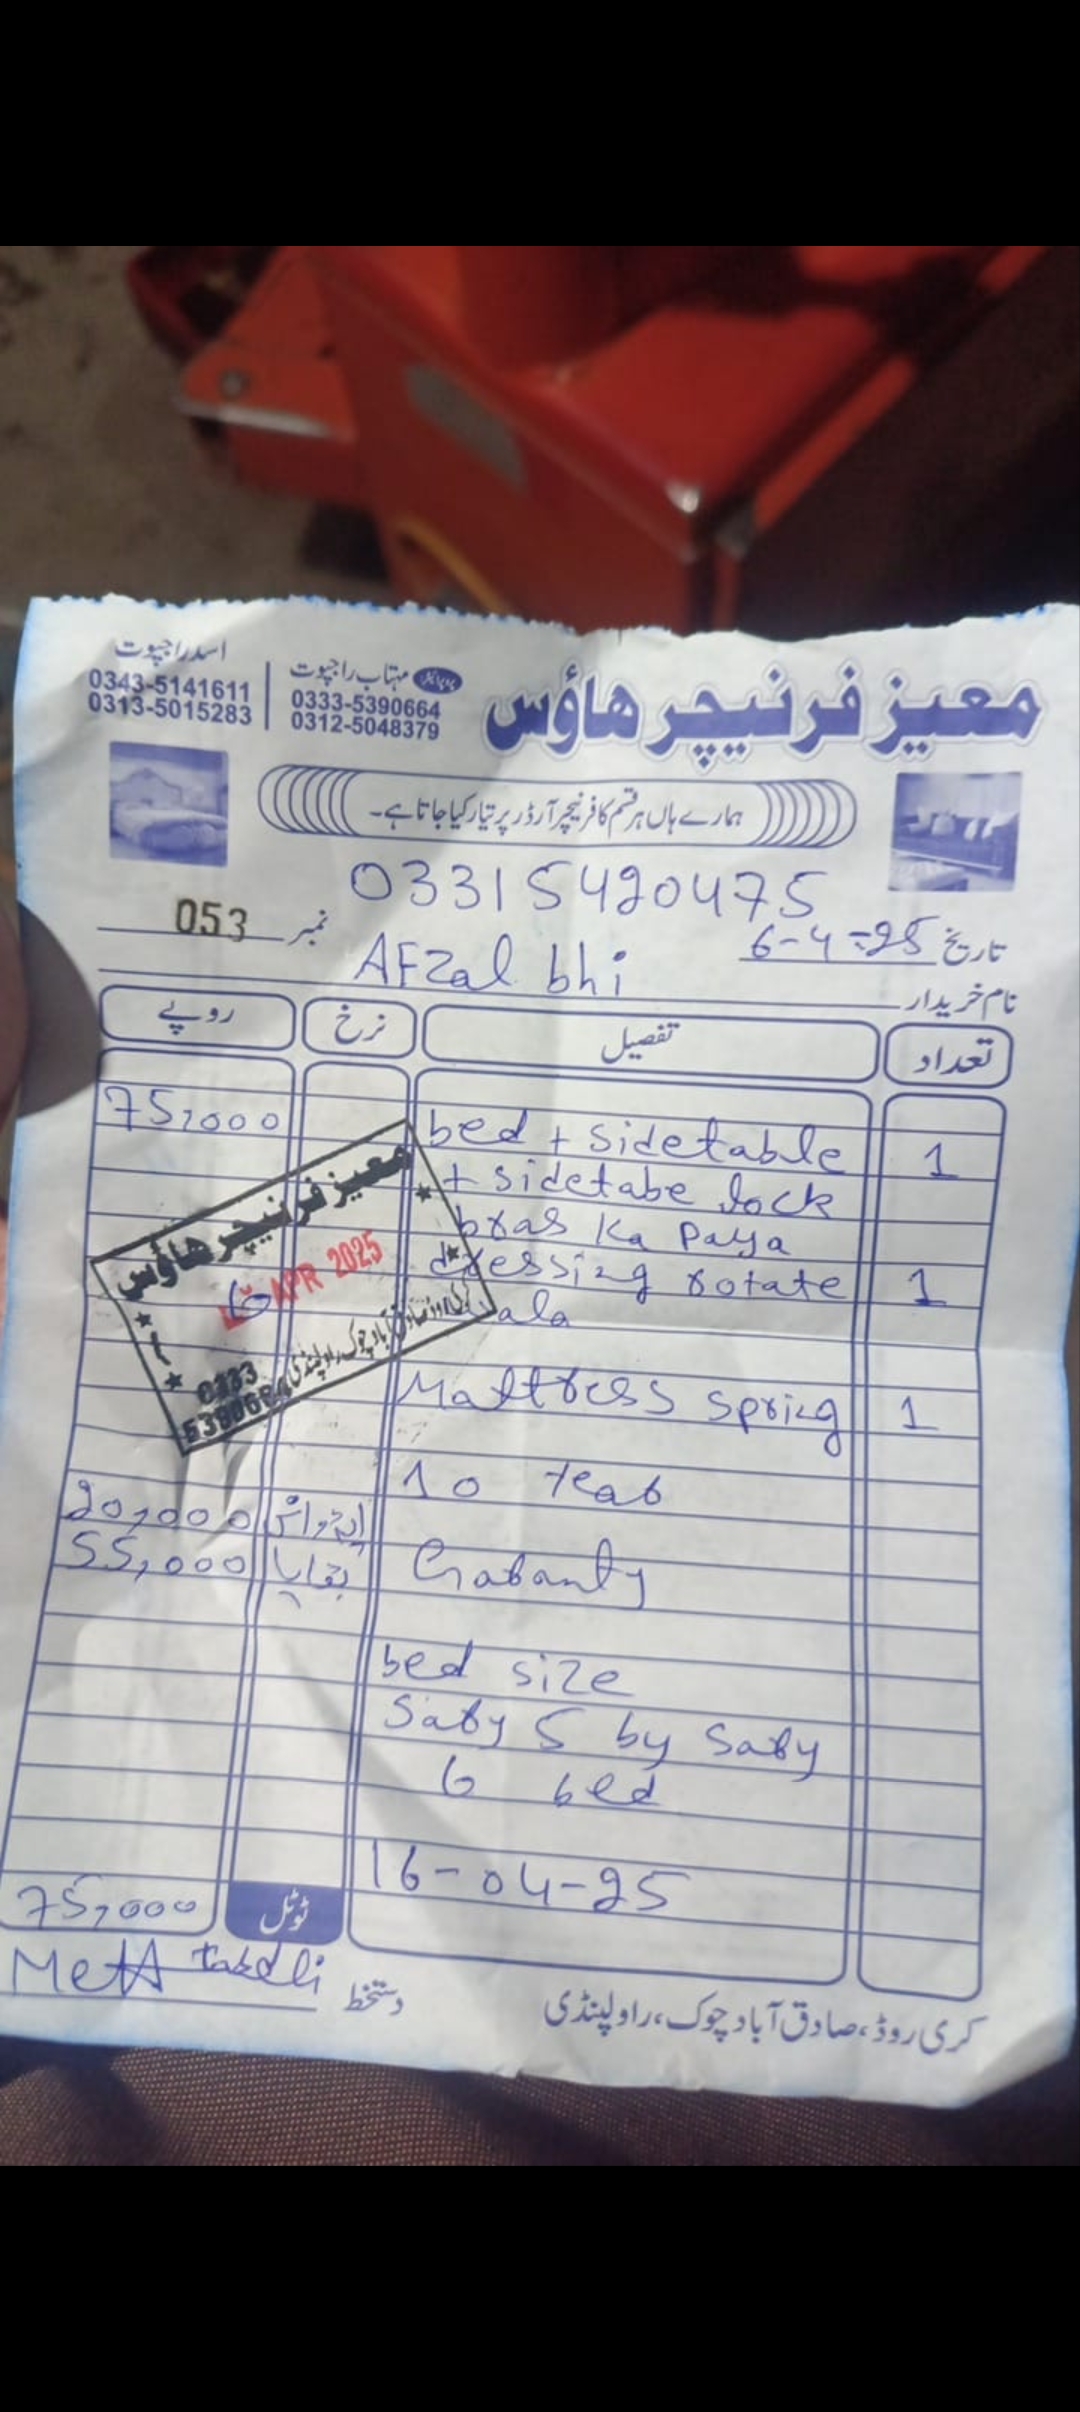 معیز فرنیچر هاؤس
مہتاب راجپوت
0333-5390664
0312-5048379
اسد راجپوت
0343-5141611
0313-5015283
ہمارے ہاں ہر قسم کا فرنیچر آرڈر پر تیار کیا جاتا ہے۔
03315420475
نمبر 053
تاریخ 6-4-25
نام خریدار AFzal bhi
تعداد تفصیل نرخ روپے
1 bed + sidetable 75,000
+ sidetabe lock
bras ka paya
1 dressing rotate
wala
معیز فرنیچر هاؤس
6 APR 2025
کری روڈ صادق آباد چوک راولپنڈی
0333
5390664
1 Mattress spring
10 year
20,000
Garanty بقایا 55,000
bed size
Sary 5 by Sary
6 bed
16-04-25
ٹوٹل 75,000
دستخط
کری روڈ، صادق آباد چوک، راولپنڈی